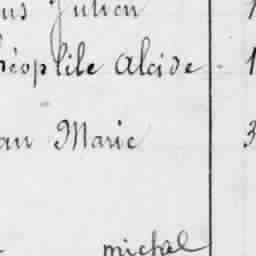 us Julien 1
héophile Alcide - 1
an Marie 3
michel